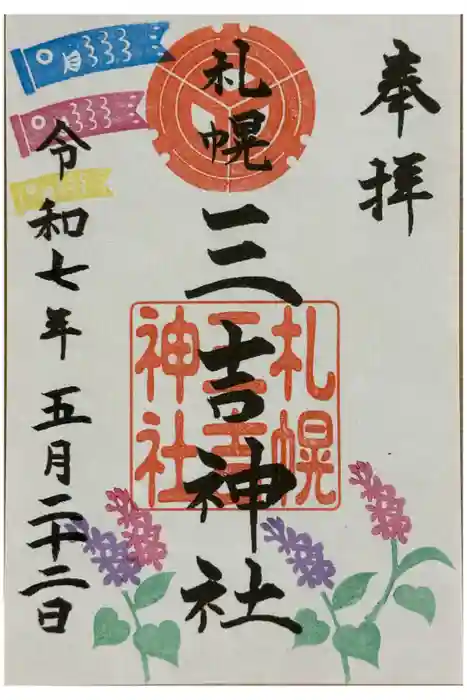 奉拝
札幌
三吉神社
札幌
三吉
神社
令和七年五月二十二日